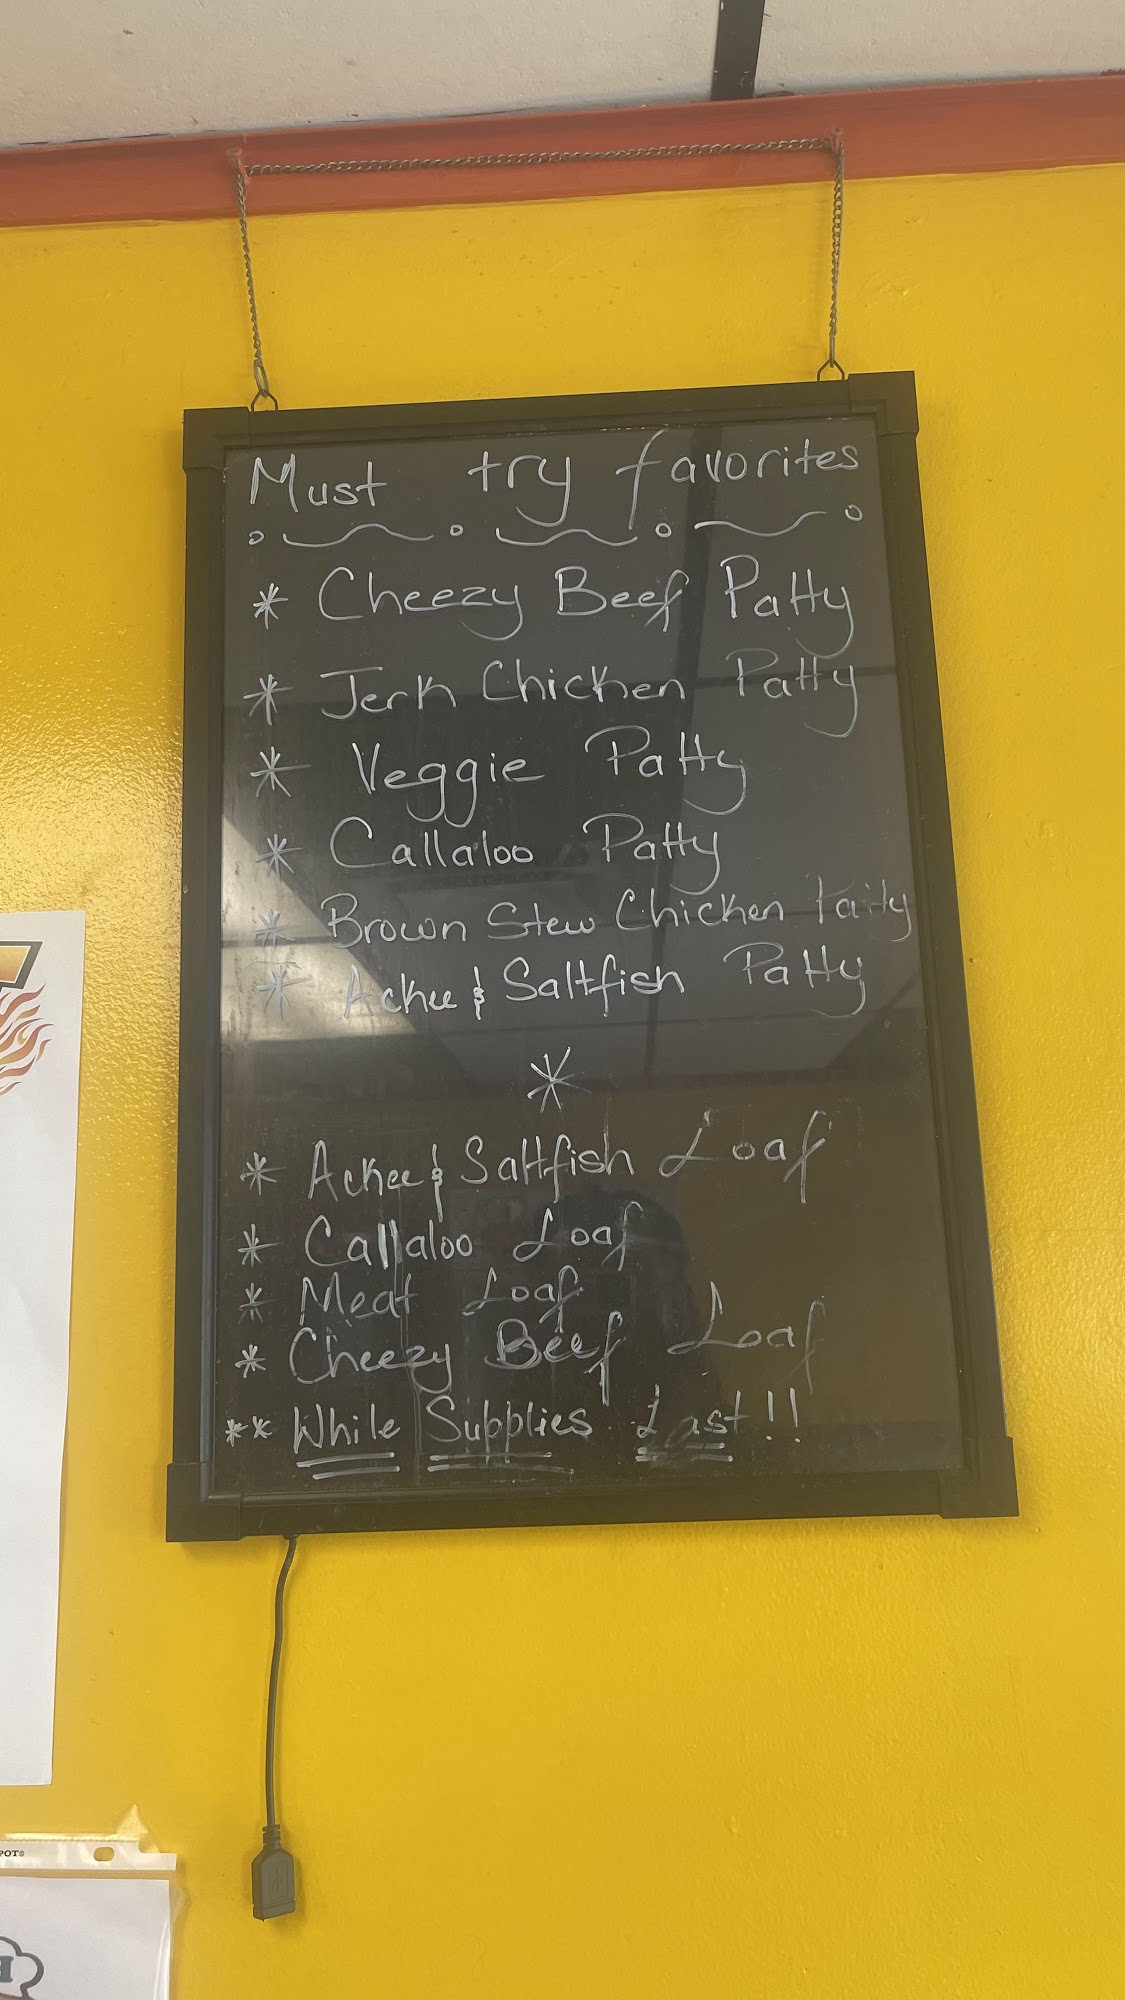 Must try favorites
* Cheezy Beef Patty
* Jerk Chicken Patty
* Veggie Patty
* Callaloo Patty
* Brown Stew Chicken Patty
* Ackee & Saltfish Patty
*
* Ackee & Saltfish Loaf
* Callaloo Loaf
* Meat Loaf
* Cheezy Beef Loaf
** While Supplies Last!!
POT®